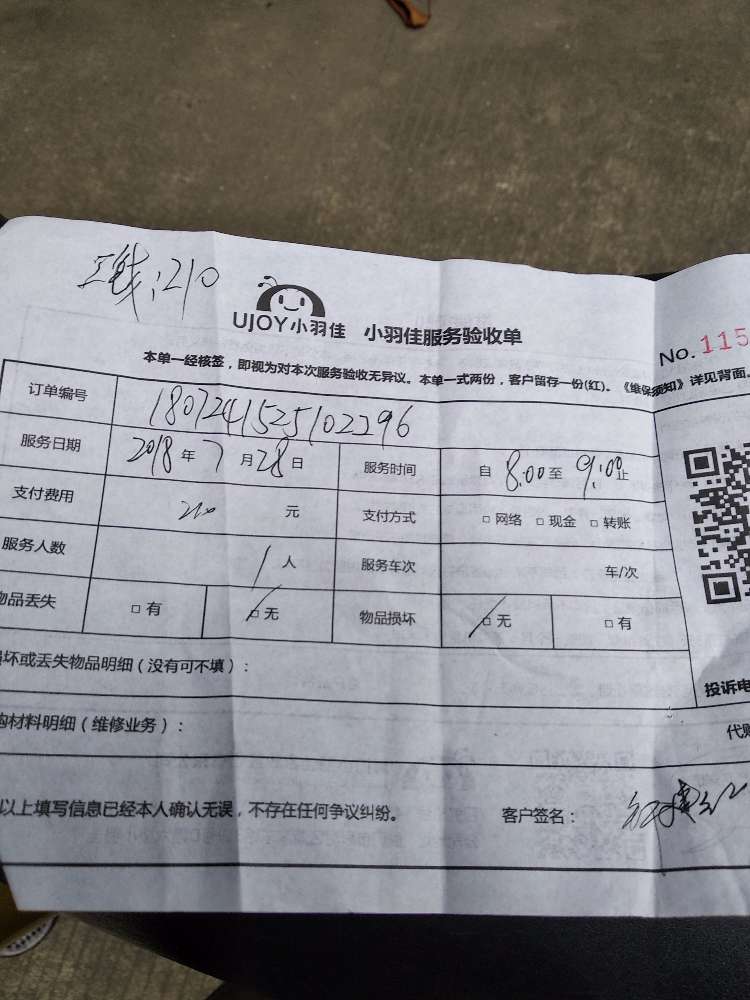 工钱:210
UJOY小羽佳 小羽佳服务验收单
No.115
本单一经核签，即视为对本次服务验收无异议。本单一式两份，客户留存一份(红)。《维保须知》详见背面。
订单编号 1807241525102296
服务日期 2018年7月28日 服务时间 自8:00至9:00止
支付费用 210元 支付方式 □网络 □现金 □转账
服务人数 1人 服务车次 车/次
物品丢失 □有 □无 物品损坏 □无 □有
损坏或丢失物品明细（没有可不填）：
投诉电
购材料明细（维修业务）：
代购
以上填写信息已经本人确认无误，不存在任何争议纠纷。 客户签名：